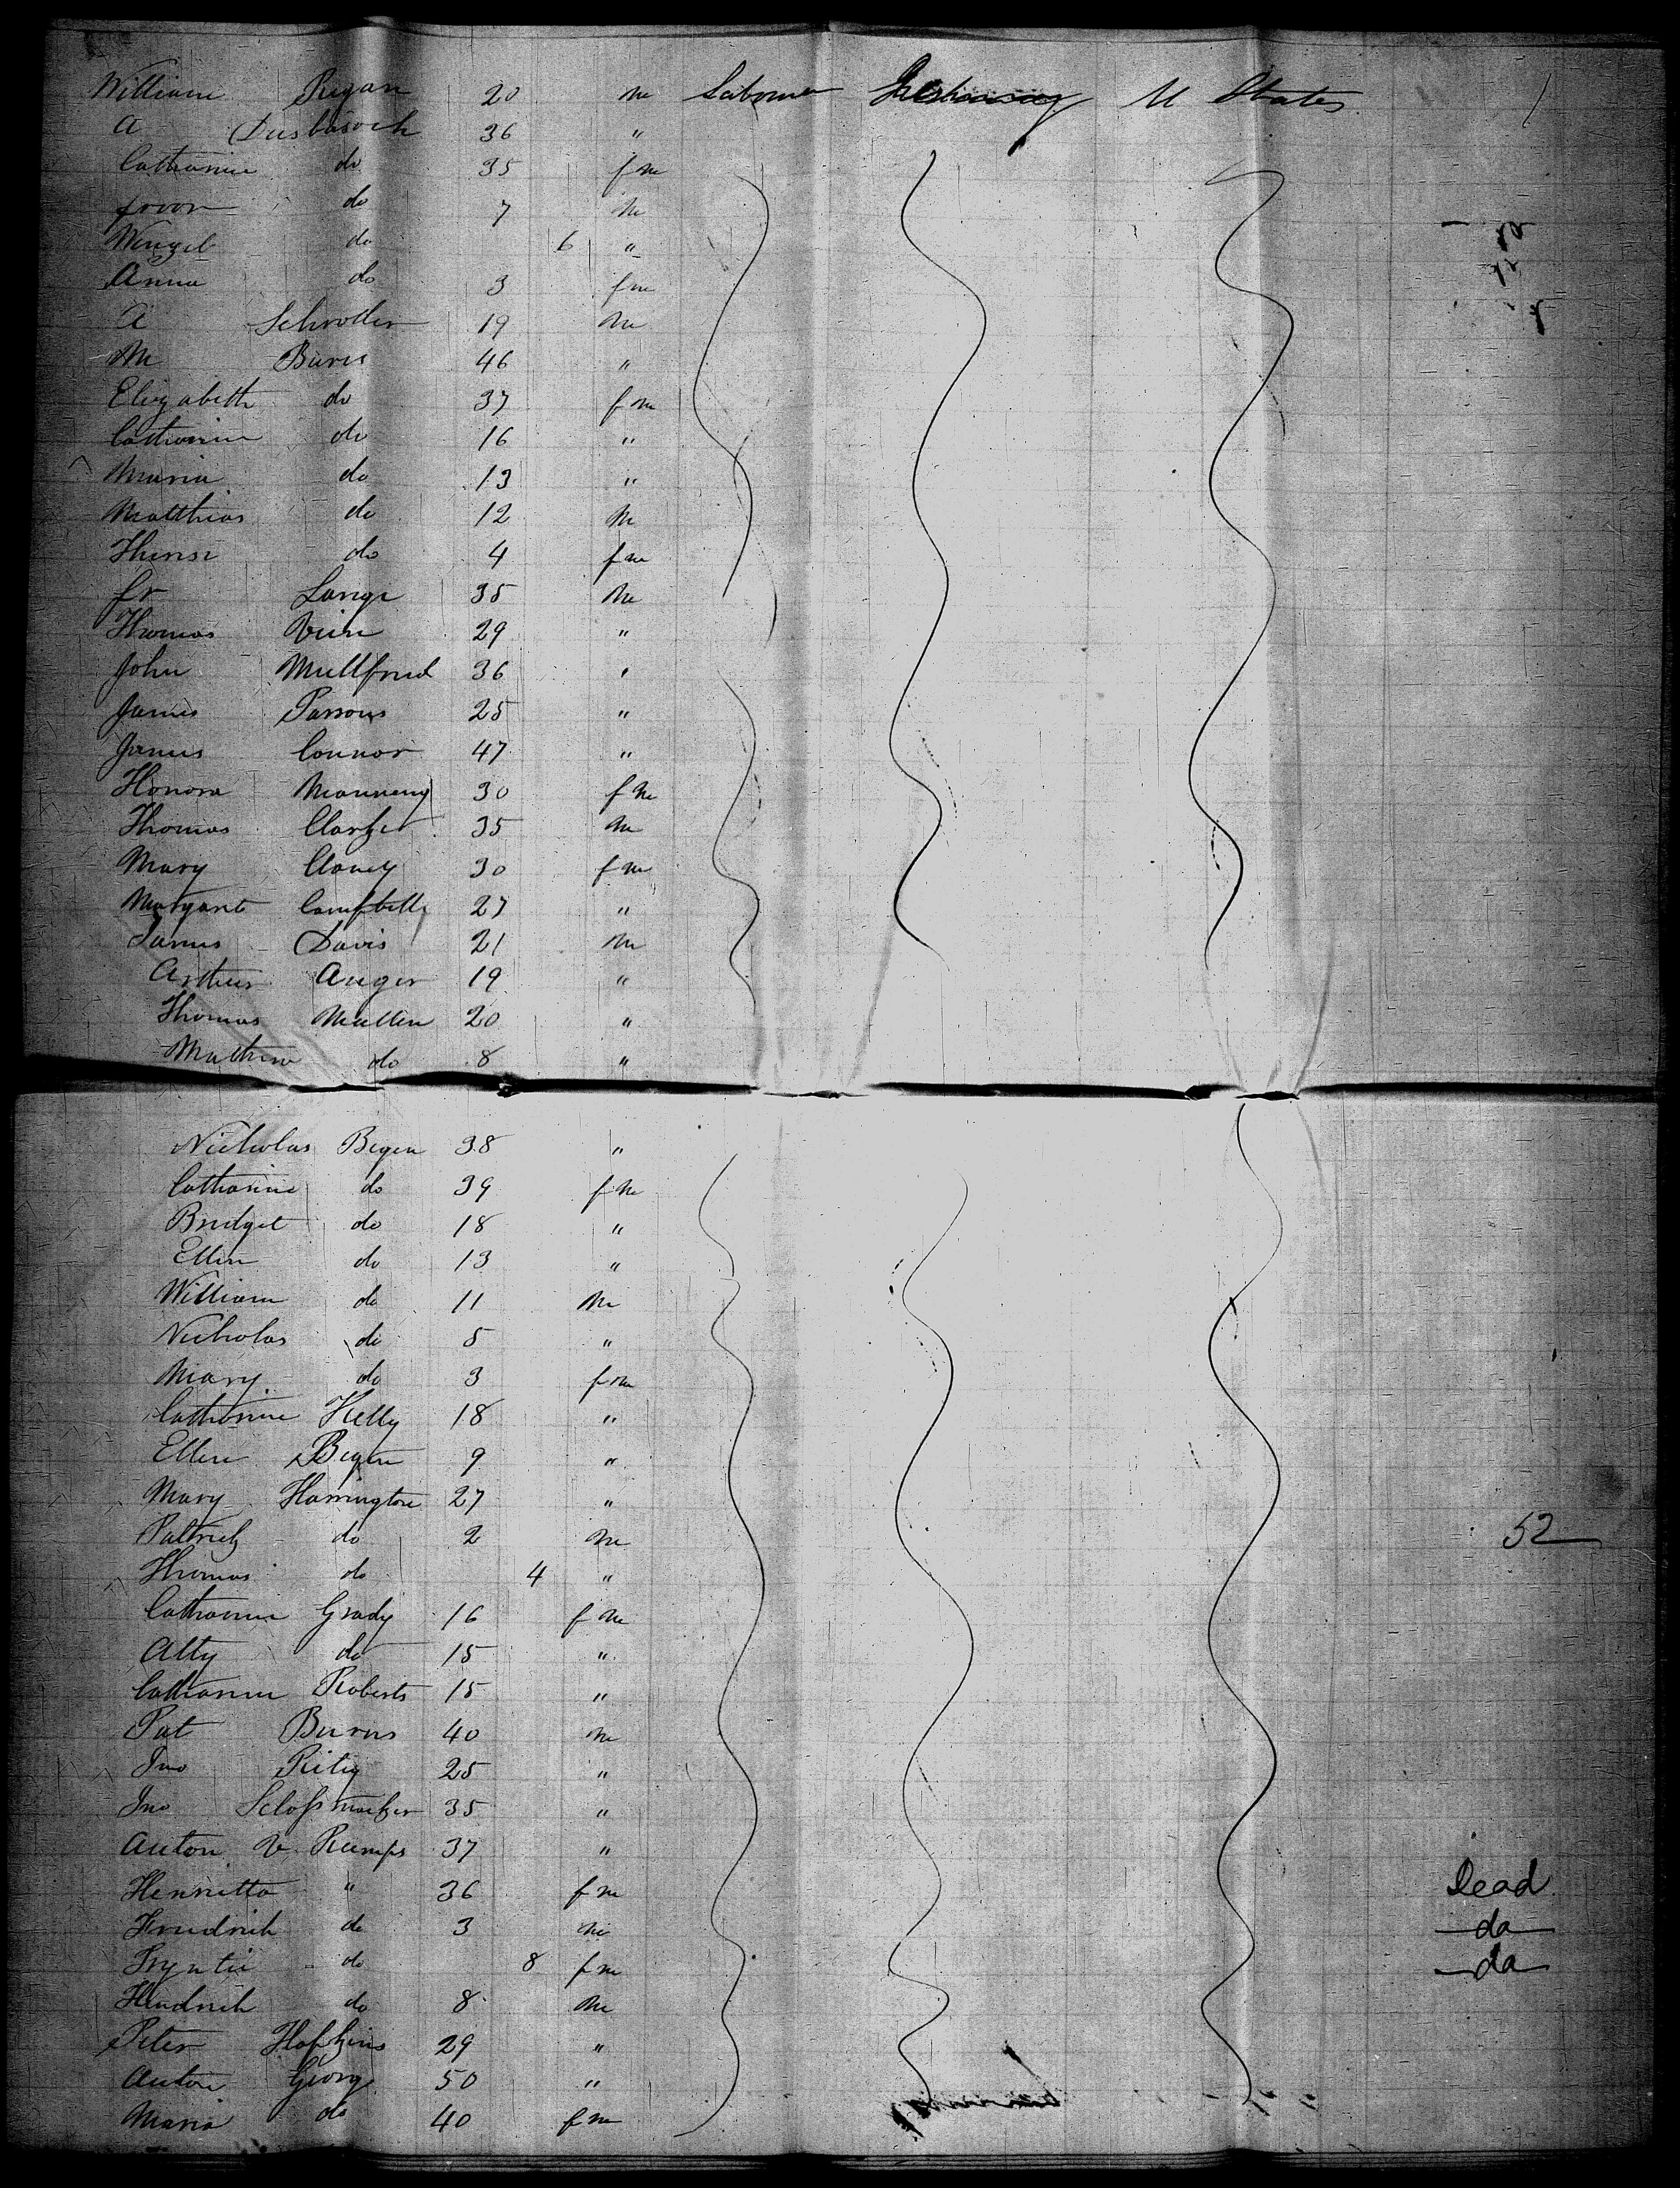 William Regan 20 m Laborer U States
A 36 "
Catharine do 35 fm
do 7 m
Wenzel do 6 "
Anna do 3 fm
A Schroder 19 m
M Bures 46 "
Elizabeth do 37 fm
Catharine do 16 "
Maria do 13 "
Matthias do 12 m
do 4 fm
Fr Lange 35 m
Thomas 29 "
John Mullford 36 "
James Parsons 25 "
James Connor 47 "
Honora Manneng 30 fm
Thomas Clarker 35 m
Mary Clancy 30 fm
Margaret Campbell 27 "
James Davis 21 m
Arthur Auger 19 "
Thomas Mullen 20 "
Mathew do 8 "
Nicholas Begen 38 "
Catharine do 39 fm
Bridget do 18 "
Ellen do 13 "
William do 11 m
Nicholas do 5 "
Mary do 3 fm
Catharine Kelly 18 "
Ellen Begen 9 "
Mary Harrington 27 "
Patrick do 2 m 52
Thomas do 4 "
Catharine Grady 16 fm
Atty do 15 "
Catharine Roberts 15 "
Pat Burns 40 m
Jno Rity 25 "
Jno 35 "
Anton v Rumps 37 "
Henrietta " 36 fm Dead
Friedrich do 3 m da
Tryntie do 8 fm da
Hendrich do 8 m
Peter Hopkins 29 "
Anton Georg 50 "
Maria do 40 fm